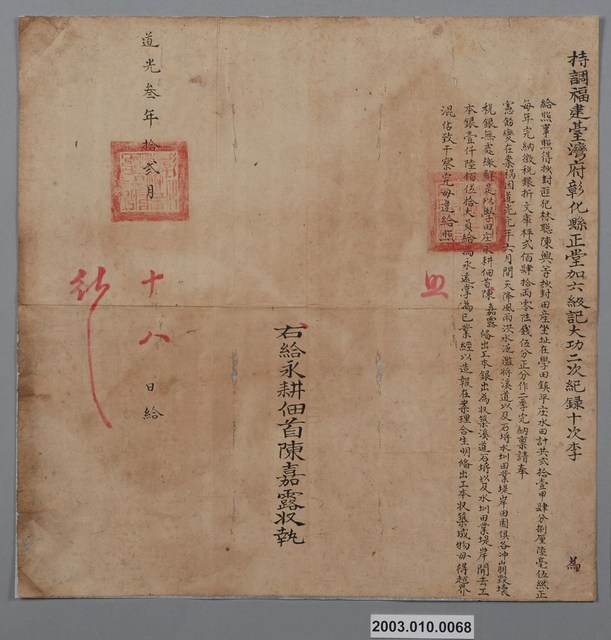 特調福建臺灣府彰化縣正堂加六級記大功二次紀錄十次李 為
給照事照得抄封匪犯林聰陳興等抄封田產坐址在學田鎮平庄水田計共弍拾壹甲肆分捌厘陸毫伍絲正
每年完納徵稅銀折文庫秤弍佰肆拾兩零陸錢伍分正分作二季完納稟請奉
憲飭變在案禍因道光元年六月間天降風雨洪水泛濫將溪道以及石埒水圳田業堤岸田園俱各沖崩毀壞
稅銀無處繳 是以學田庄永耕佃首陳嘉露 出工本銀出為收築溪道石埒以及水圳田業堤岸開去工
本銀壹仟陸佰伍拾大員給為永遠掌為己業經以造報在案理合生明 出工本收築成物毋得越界
混佔致干察究毋違給照
右給永耕佃首陳嘉露收執
道光叁年拾弍月 十八 日給
2003.010.0068